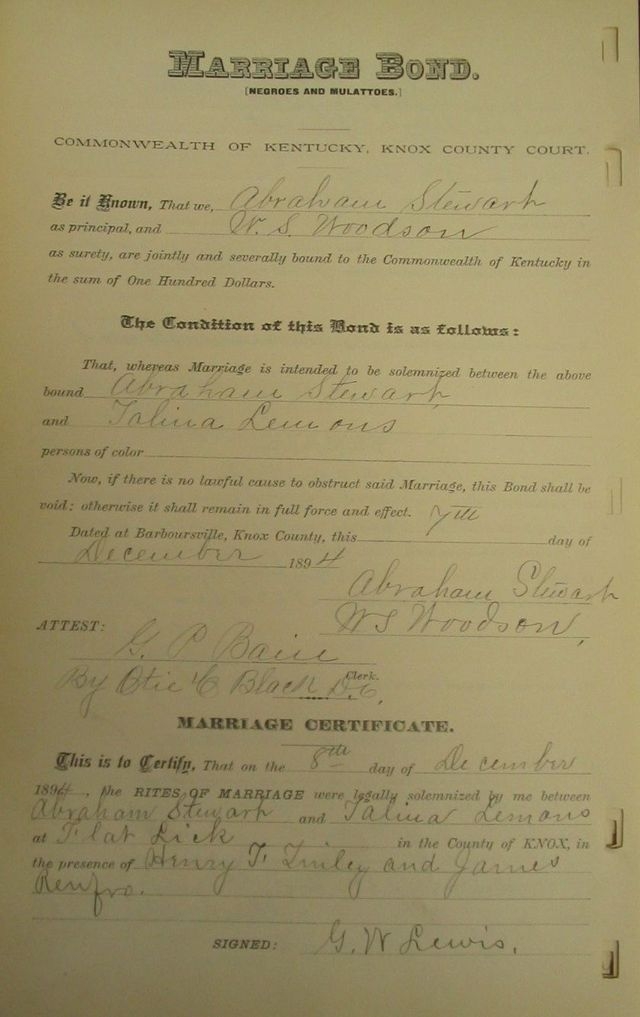 MARRIAGE BOND.
[NEGROES AND MULATTOES.]
COMMONWEALTH OF KENTUCKY, KNOX COUNTY COURT.
Be it Known, That we, Abraham Stewart
as principal, and W. S. Woodson
as surety, are jointly and severally bound to the Commonwealth of Kentucky in
the sum of One Hundred Dollars.
The Condition of this Bond is as follows:
That, whereas Marriage is intended to be solemnized between the above
bound Abraham Stewart
and Talina Lemons
persons of color
Now, if there is no lawful cause to obstruct said Marriage, this Bond shall be
void; otherwise it shall remain in full force and effect.
Dated at Barboursville, Knox County, this 7th day of
December 1894
Abraham Stewart
W S Woodson,
ATTEST:
G. P. Clerk.
By Black D.C.
MARRIAGE CERTIFICATE.
This is to Certify, That on the 8th day of December
1894, the RITES OF MARRIAGE were legally solemnized by me between
Abraham Stewart and Talina Lemons
at Flat Lick in the County of KNOX, in
the presence of Henry F. and James
Renfro.
SIGNED: G. W Lewis.